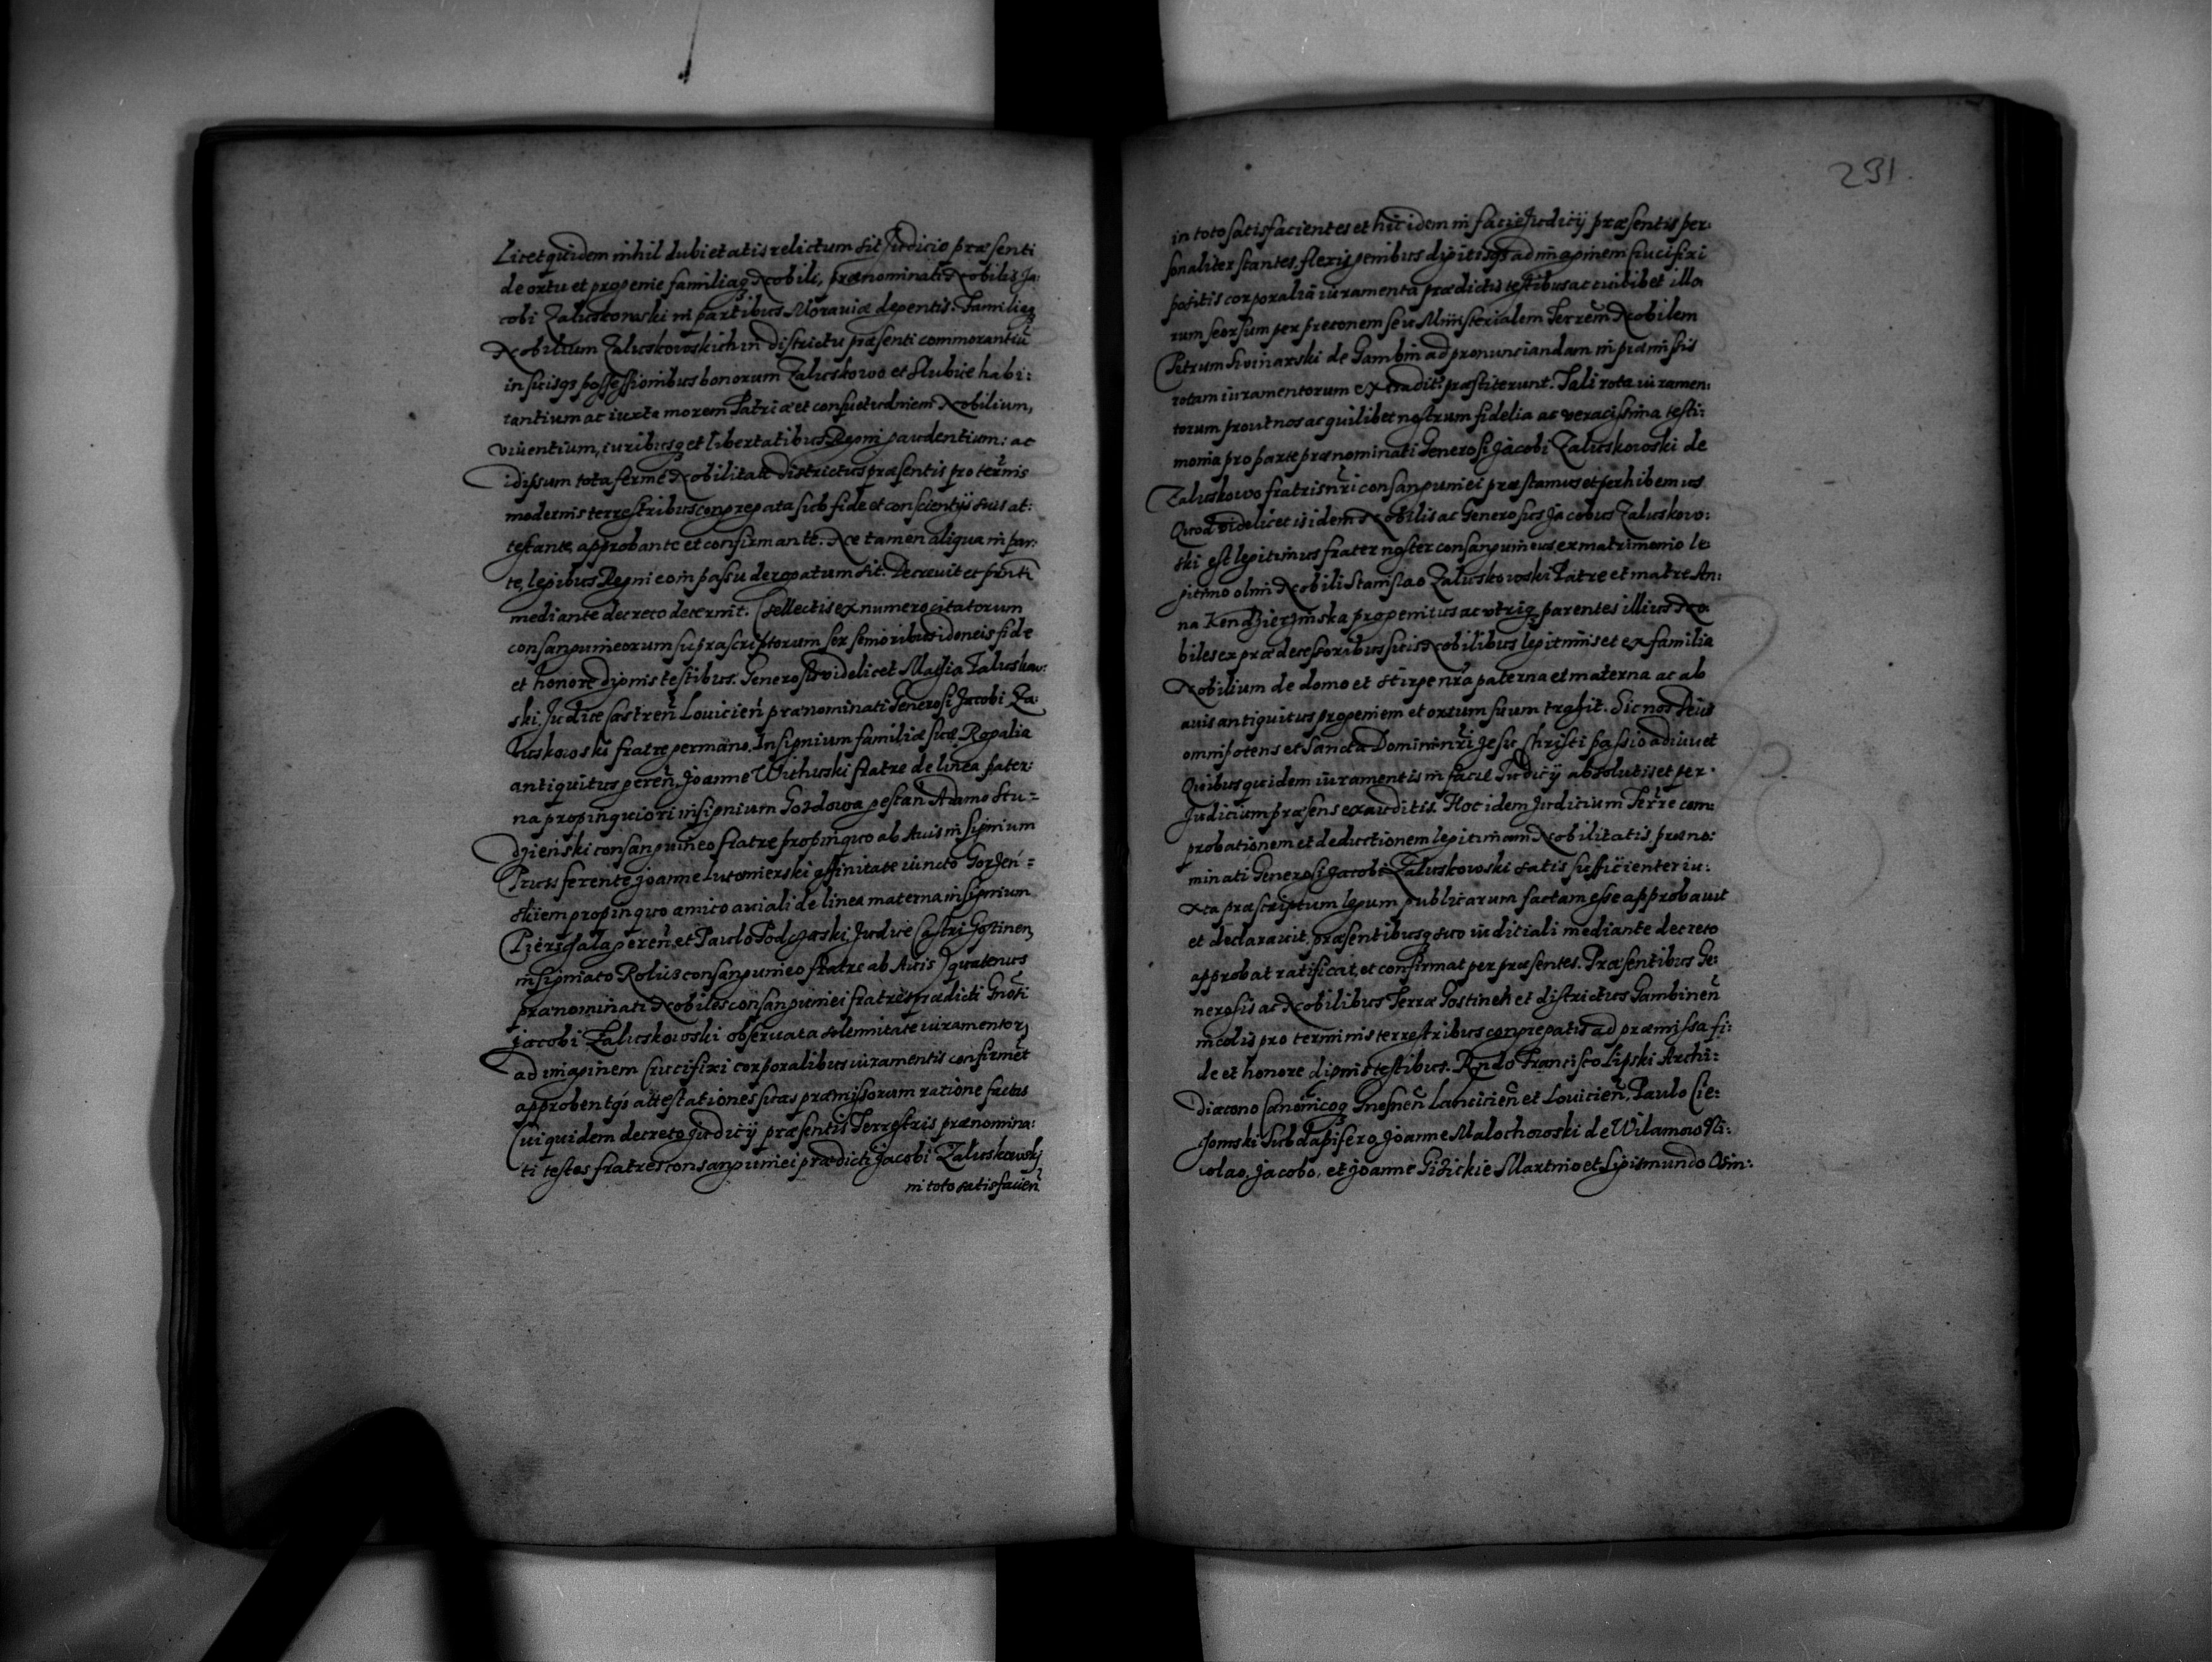 Licet quidem nihil dubietatis relictum sit Judicio præsenti
de ortu et progenie familiaq Nobili, prænominati Nobilis Ja:
cobi Zaluskowski in partibus Moraviæ degentis. Familiæq
Nobilium Zaluskowskich in districtu præsenti commorantiũ
in suisqs possessionibus bonorum Zaluskowo et Slubice habi:
tantium ac iuxta morem Patriæ et consuetudinem Nobilium,
viuentium, iuribusq et libertatibus Regni gaudentium: ac
idipsum tota fermè Nobilitate districtus præsentis pro termis
modernis terrestribus congregata sub fide et conscientijs suis at:
testante, approbante et confirmante. Ne tamen aliqua in par:
te, legibus Regni eo in passu derogatum sit. Decreuit et pñti
mediante decreto decernit. Sellectis ex numero citatorum
consanguineorum suprascriptorum sex senioribus idoneis fide
et honore dignis testibus. Generosis videlicet Mathia Zaluskow:
ski Judice Castreñ Louicieñ prænominati Generosi Jacobi Za:
luskowski fratre germano. Insignium familiæ suæ Rogalia
antiquitus gereñ, Joanne Withuski fratre de linea pater:
na propinquiori insignium Gozdowa gestañ Adamo Stu=
dzienski consanguineo fratre propinquo ab Auis insignium
Pruss ferente Joanne Lutomierski affinitate iuncto Gorzen=
skiem propinquo amico auiali de linea materna insignium
Pierzchala gereñ, et Paulo Podczaski, Judice Castri Gostinen,
insigniato Rolicz consanguineo fratre ab Auis) quatenus
prænominati Nobiles consanguinei fratres prædicti Gnosi
Jacobi Zaluskowski obseruata solennitate iuramentor,
ad imaginem Crucifixi corporalibus iuramentis confirmẽt
approbentqs attestationes suas præmissorum ratione factas
Cui quidem decreto Judicij præsentis Terrestris prænomina:
ti testes fratres consanguinei prædicti Jacobi Zaluskowskj
in toto satisfacieñ
291.
in toto satisfacientes et hic idem in facie Judicij præsentis per:
sonaliter stantes, flexis genibus digitisqs ad imaginem Crucifixi
positis corporalia iuramenta prædictis testibus ac cuilibet illo
rum seorsum per preconem seu Ministerialem Terreñ Nobilem
Petrum Swinarski de Gambin ad pronunciandam in præmissis
rotam iuramentorum præstiterunt. Tali rota iuramen:
torum prout nos ac quilibet nostrum fidelia ac veracissima testi:
monia pro parte prænominati Generosi Jacobi Zaluskowski de
Zaluskowo fratris nri consanguinei præstamus et perhibemus
Quod videlicet is idem Nobilis ac Generosus Jacobus Zaluskow:
ski est legitimus frater noster consanguineus ex matrimonio le
gitimo olim Nobili Stanislao Zaluskowski Patre et matre An:
na Kendzierzinska progenitus ac vtriq parentes illius No
biles ex prædecessoribus suis Nobilibus legitimis et ex familia
Nobilium de domo et stirpe nra paterna et materna ac ab
auis antiquitus progeniem et ortum suum traxit. Sic nos Deus
omnipotens et Sancta Domini nri Jesu Christi passio adiuuet
Quibus quidem iuramentis in facie Judicij absolutis et per
Judicium præsens exauditis. Hoc idem Judicium Terre com:
probationem et deductionem legitimam Nobilitatis præno:
minati Generosi Jacobi Zaluskowski satis sufficienter iu:
xta præscriptum legum publicarum factam esse approbauit
et declarauit, præsentibusq suo iudiciali mediante decreto
approbat ratificat, et confirmat per præsentes. Præsentibus Ge:
nerosis ac Nobilibus Terræ Gostineñ et districtus Gambineñ
incolis pro terminis terrestribus congregatis ad præmissa fi:
de et honore dignis testibus. Rndo Francisco Lipski Archi:
diacono Canonicoq Gnesneñ Lancicieñ et Louicieñ, Paulo Cie:
Subdapifero, Joanne Malochowski de Wilamow Ni:
colao, Jacobo, et Joanne Gizickie Martino et Sigismundo Osin: